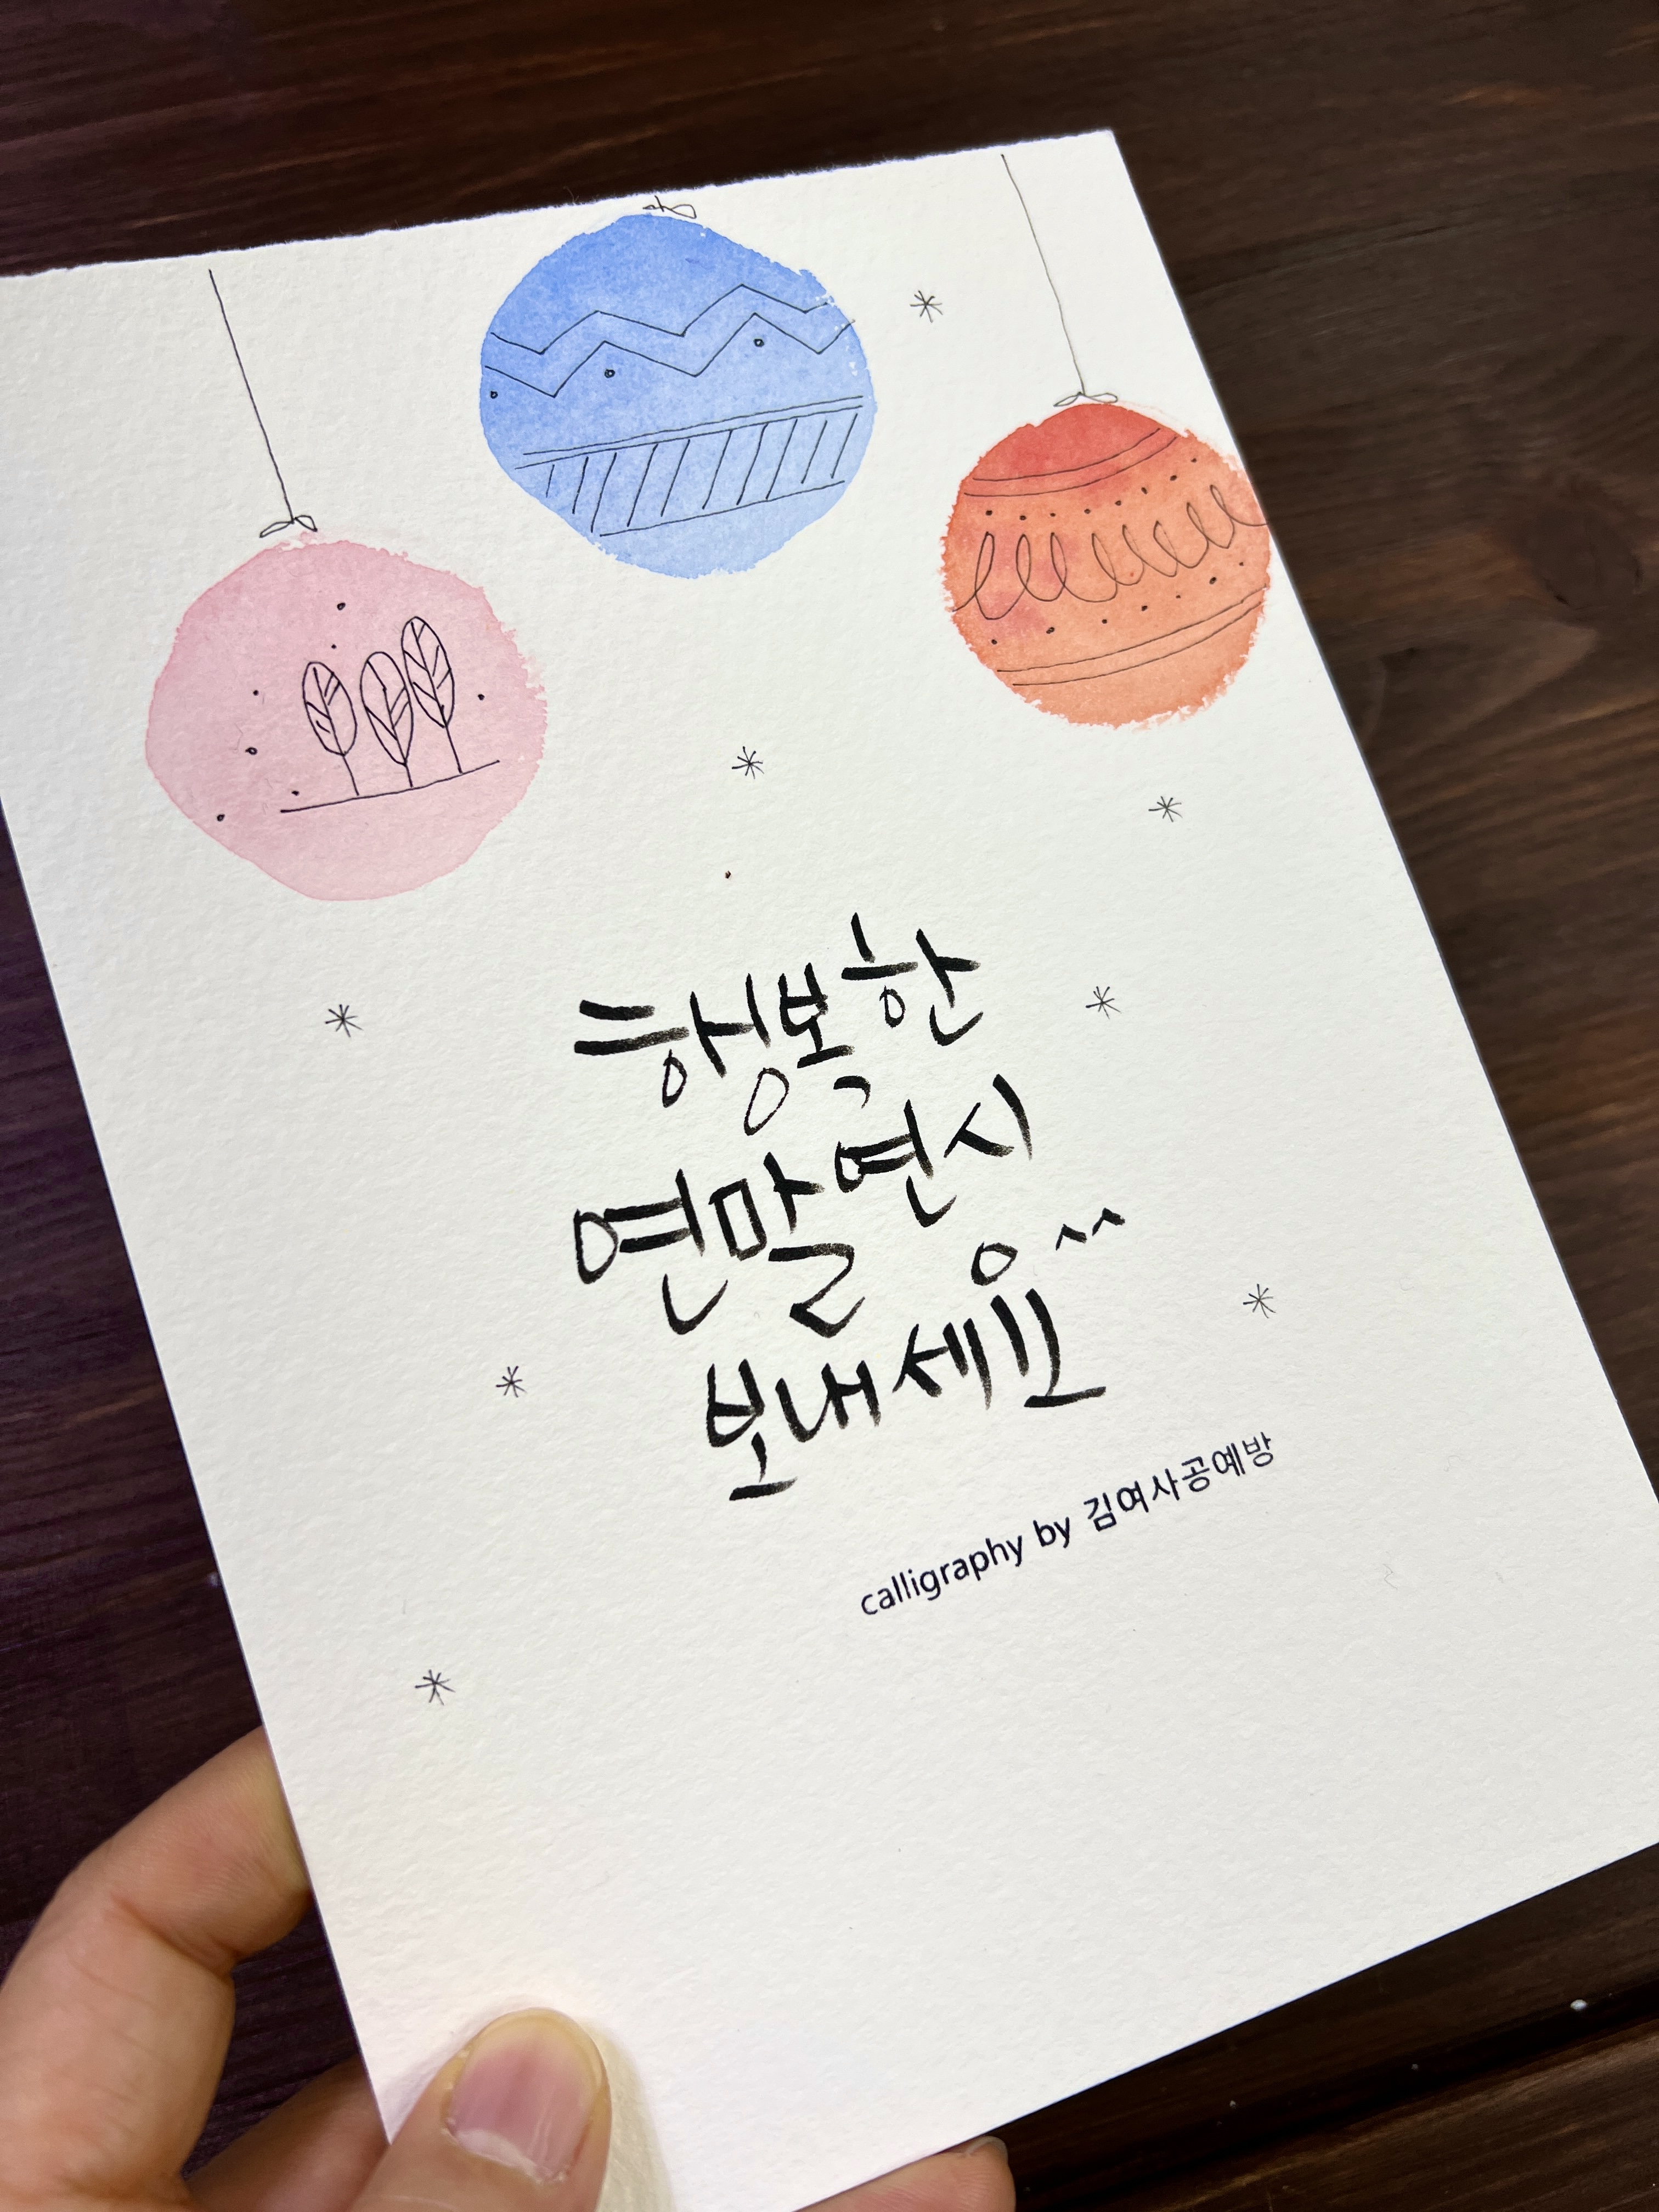 행복한
연말연시
보내세요^^
calligraphy by 김여사공예방